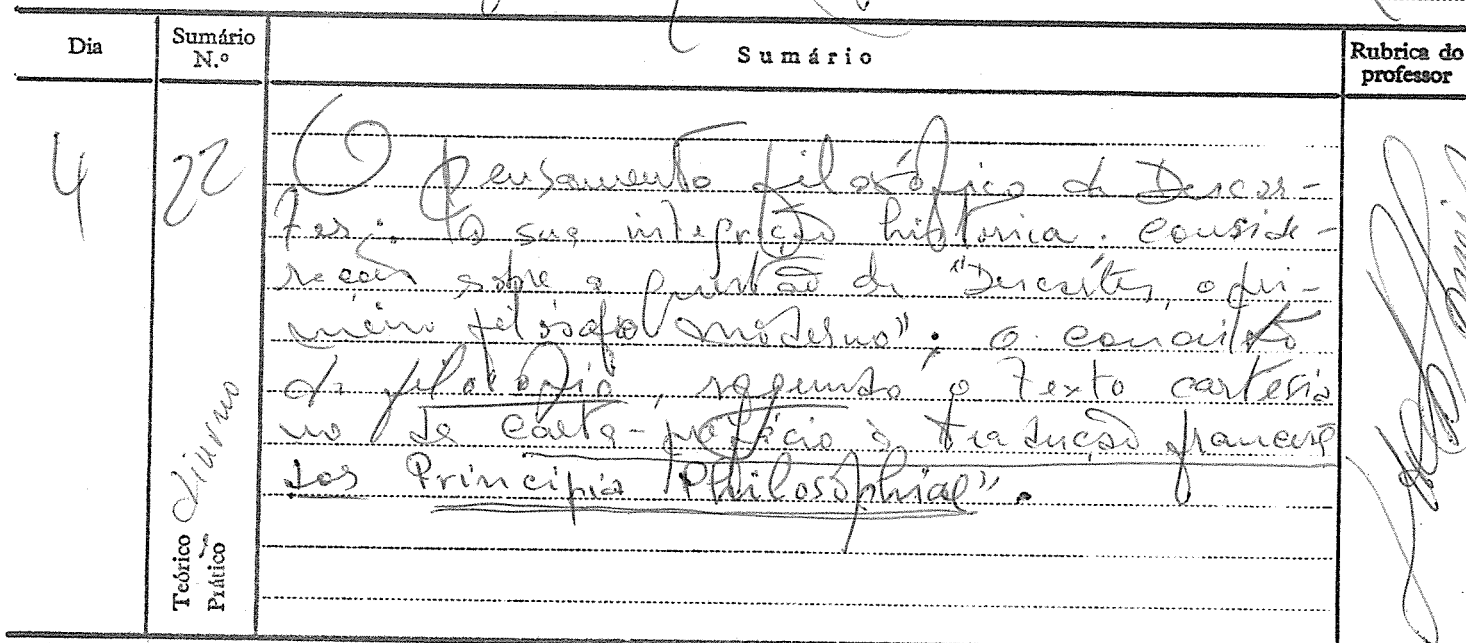 Dia
Sumário N.º
Sumário
Rubrica do professor
4
22
O pensamento filosófico de Descar-
tes: A sua integração histórica. Conside-
rações sobre a questão de "Descartes, o pri-
meiro filósofo moderno"; o conceito
de filosofia, segundo o texto cartesia
no da carta-prefácio à tradução francesa
dos Principia Philosophiae".
diurno
Teórico
Prático